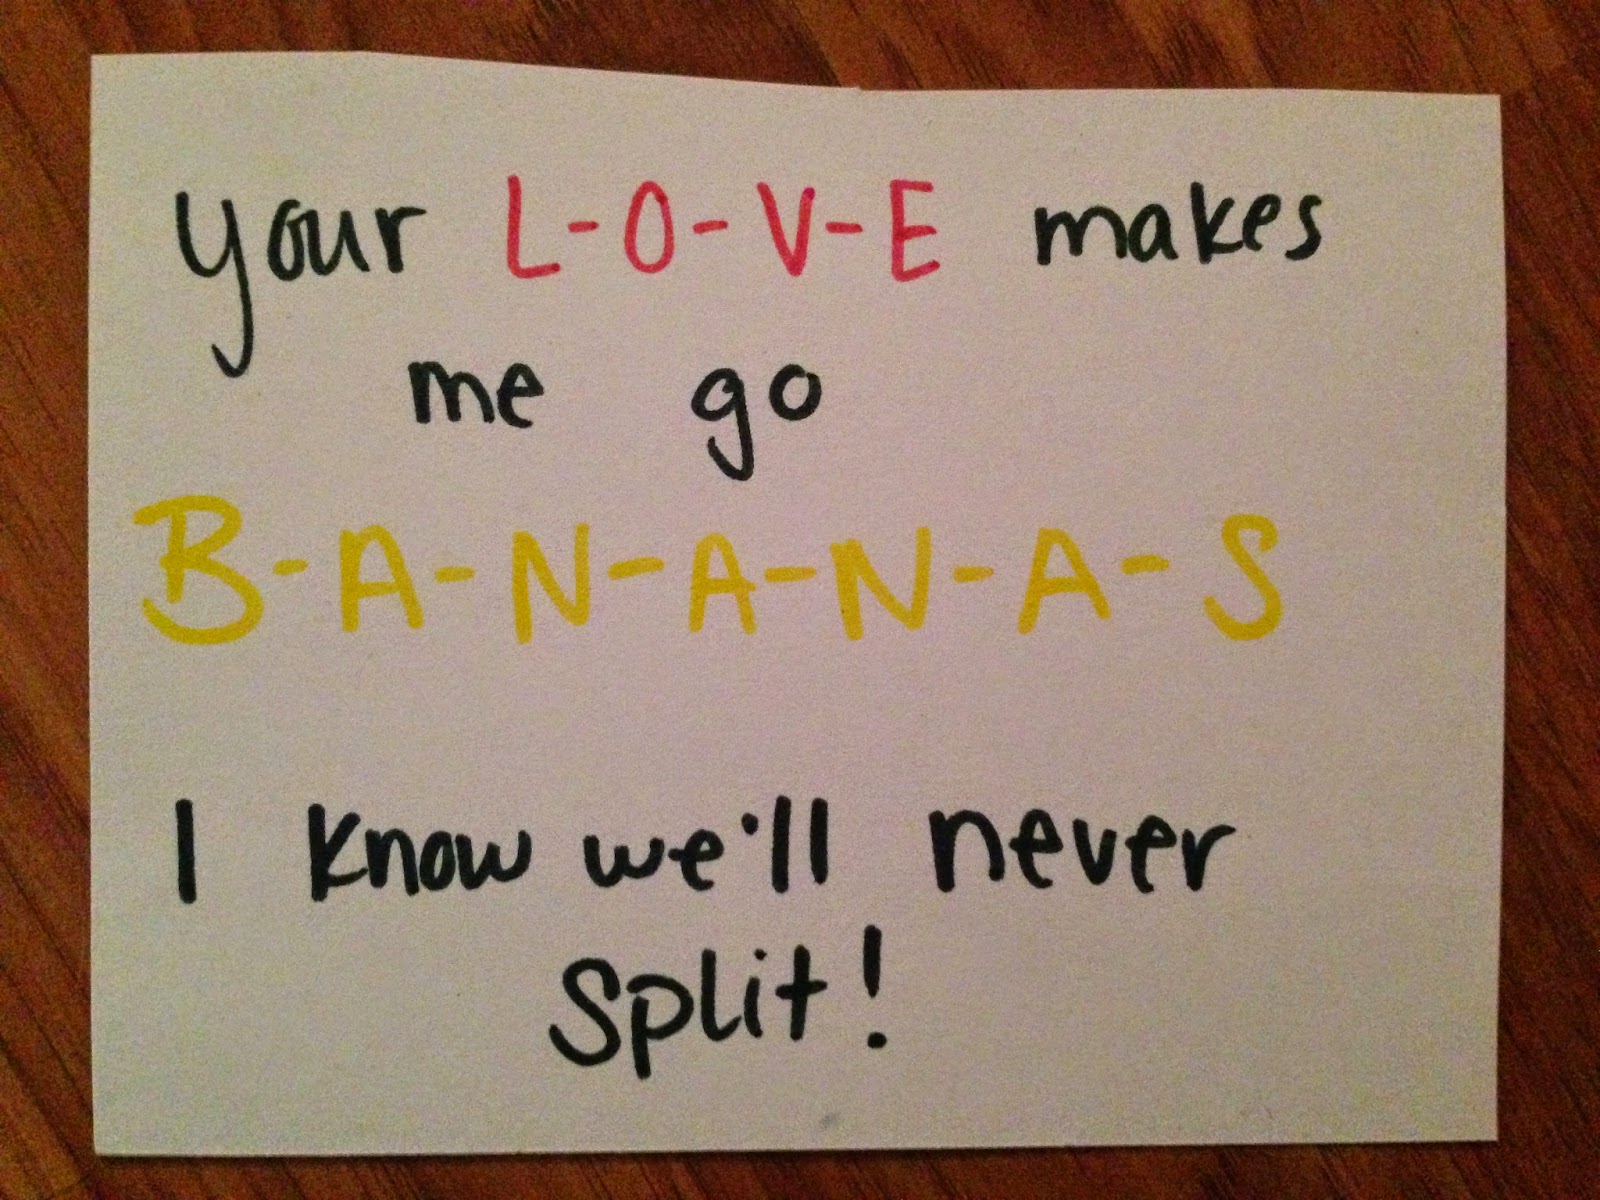 your L-O-V-E makes
me go
B-A-N-A-N-A-S
I know we'll never
Split!